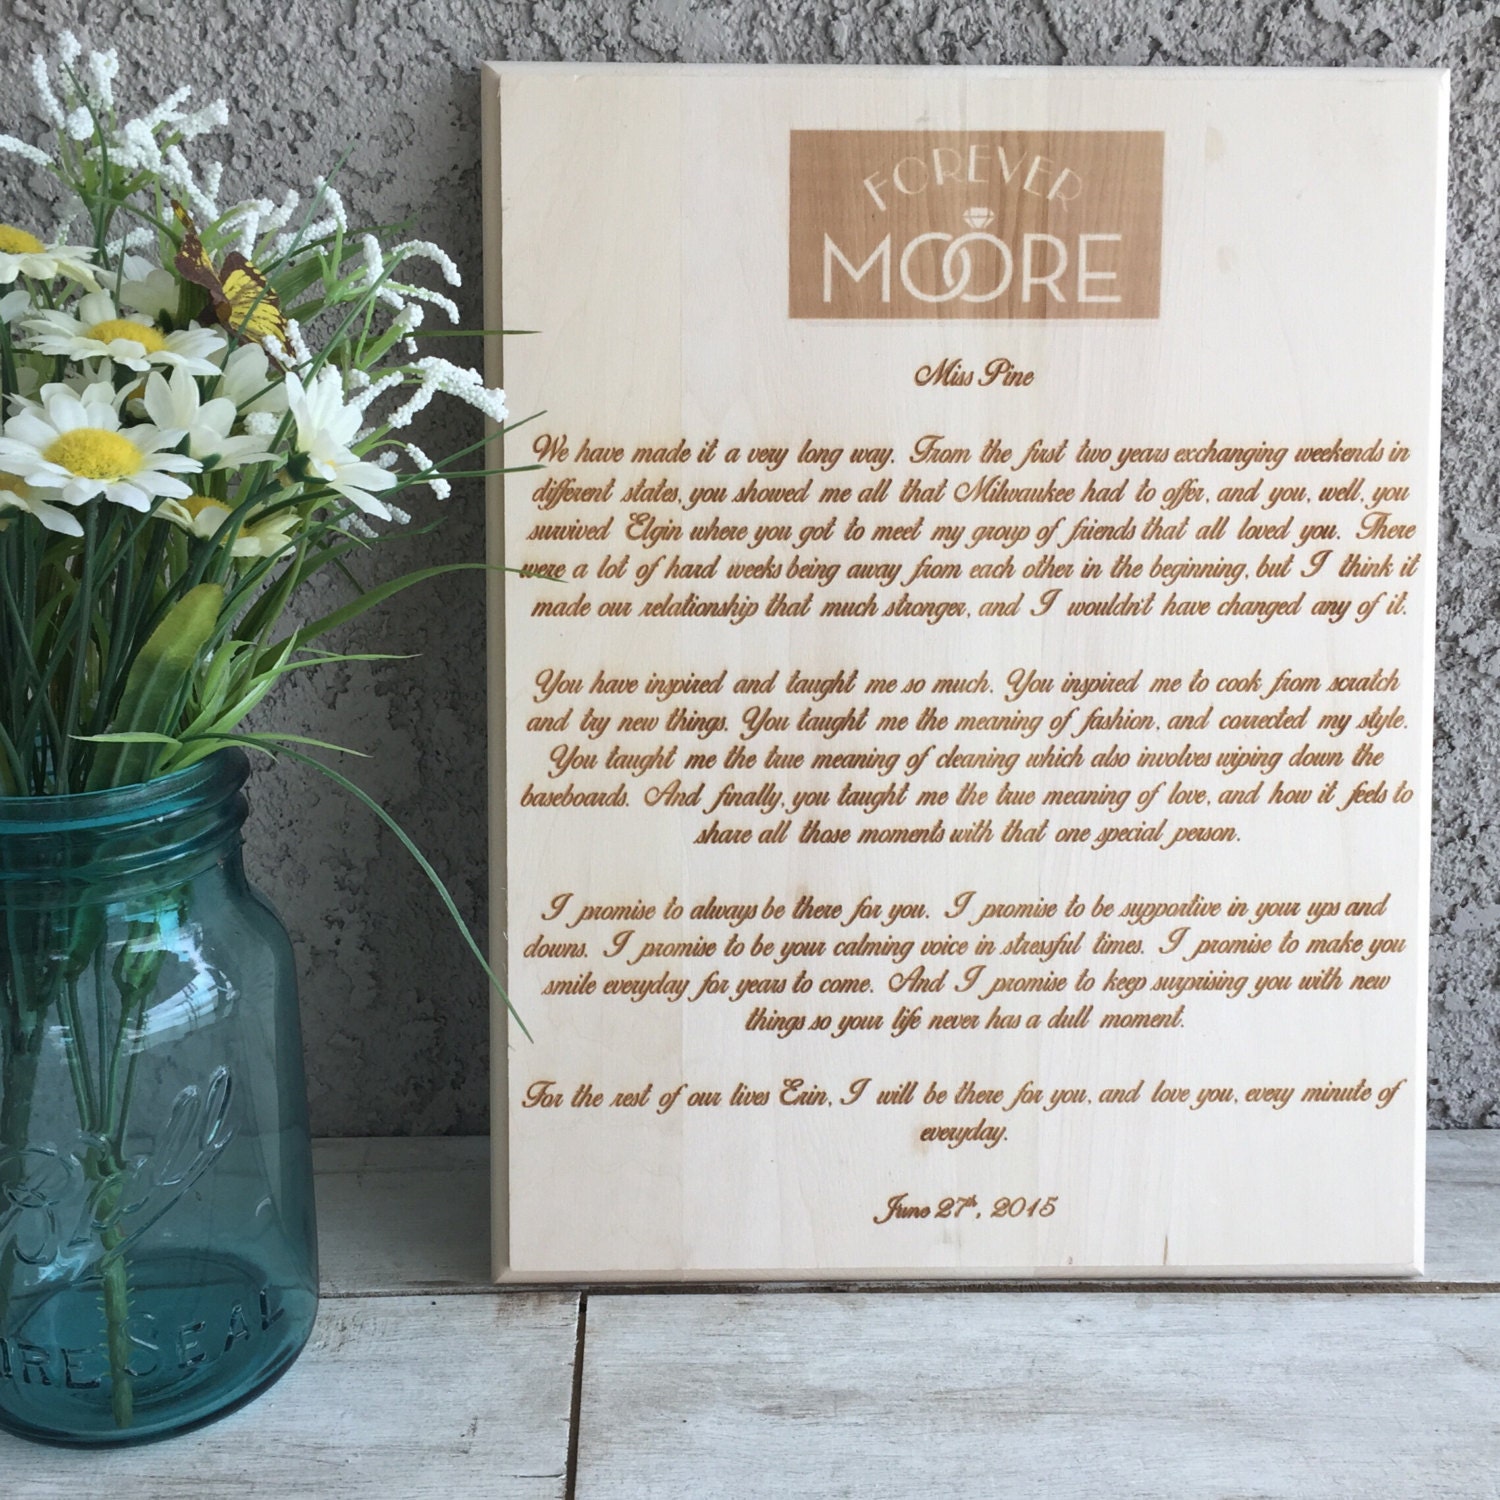 FOREVER
MOORE
Miss Pine
We have made it a very long way. From the first two years exchanging weekends in
different states, you showed me all that Milwaukee had to offer, and you, well, you
survived Elgin where you got to meet my group of friends that all loved you. There
were a lot of hard weeks being away from each other in the beginning, but I think it
made our relationship that much stronger, and I wouldn't have changed any of it.
You have inspired and taught me so much. You inspired me to cook from scratch
and try new things. You taught me the meaning of fashion, and corrected my style.
You taught me the true meaning of cleaning which also involves wiping down the
baseboards. And finally, you taught me the true meaning of love, and how it feels to
share all those moments with that one special person.
I promise to always be there for you. I promise to be supportive in your ups and
downs. I promise to be your calming voice in stressful times. I promise to make you
smile everyday for years to come. And I promise to keep surprising you with new
things so your life never has a dull moment.
For the rest of our lives Erin, I will be there for you, and love you, every minute of
everyday.
June 27th, 2015
SEAL